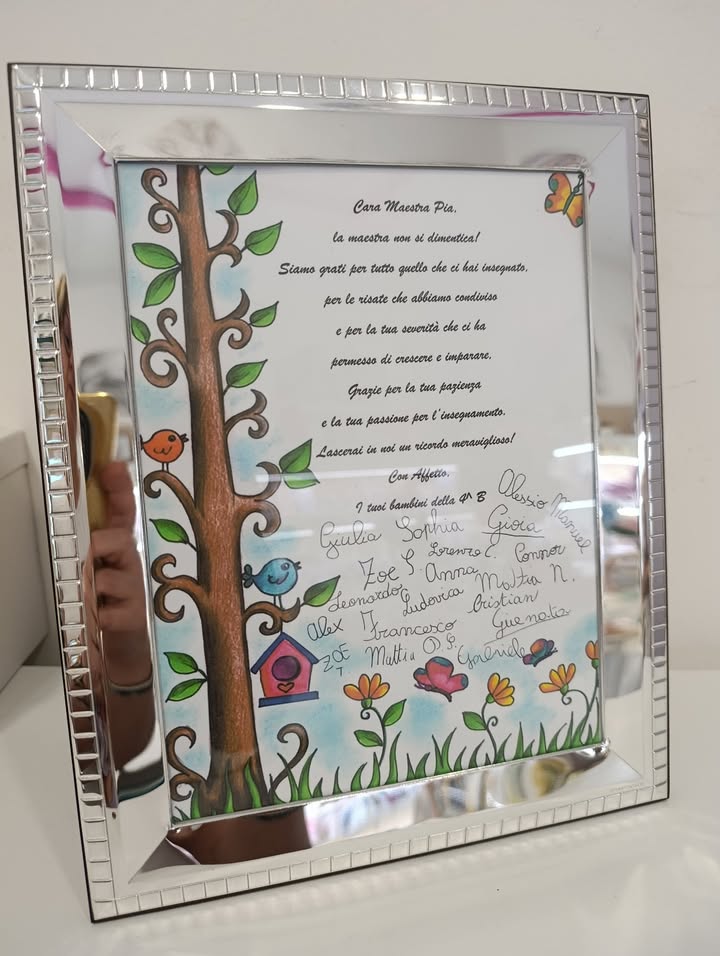 Cara Maestra Pia,
la maestra non si dimentica!
Siamo grati per tutto quello che ci hai insegnato,
per le risate che abbiamo condiviso
e per la tua severità che ci ha
permesso di crescere e imparare.
Grazie per la tua pazienza
e la tua passione per l'insegnamento.
Lascerai in noi un ricordo meraviglioso!
Con Affetto,
I tuoi bambini della 4^ B
Alessio Manuel
Giulia Sophia Gioia
Zoe S. Lorenzo C. Connor
Leonardo Anna Mattia N.
Ludovica Cristian
Alex Francesco
ZOE T Mattia D.G. Gabriele